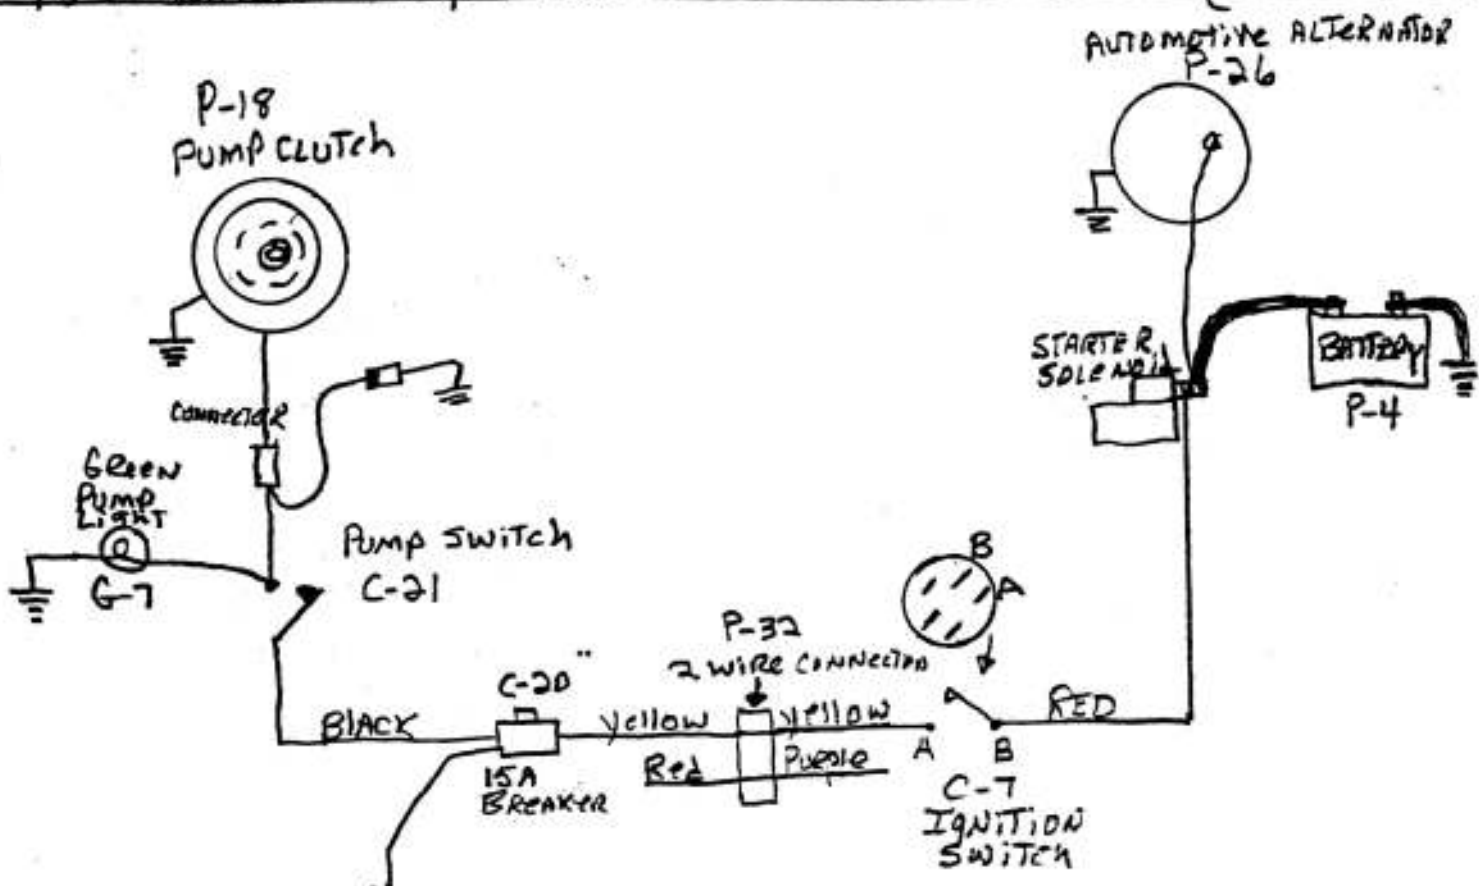 AUTOMOTIVE ALTERNATOR
P-26
P-18
PUMP CLUTCH
STARTER
SOLENOIL
BATTERY
P-4
CONNECTOR
GREEN
PUMP
LIGHT
G-7
PUMP SWITCH
C-21
B
A
P-32
2 WIRE CONNECTOR
C-20
BLACK
Yellow
Yellow
RED
Red
Purple
A
B
15A
BREAKER
C-7
IGNITION
SWITCH